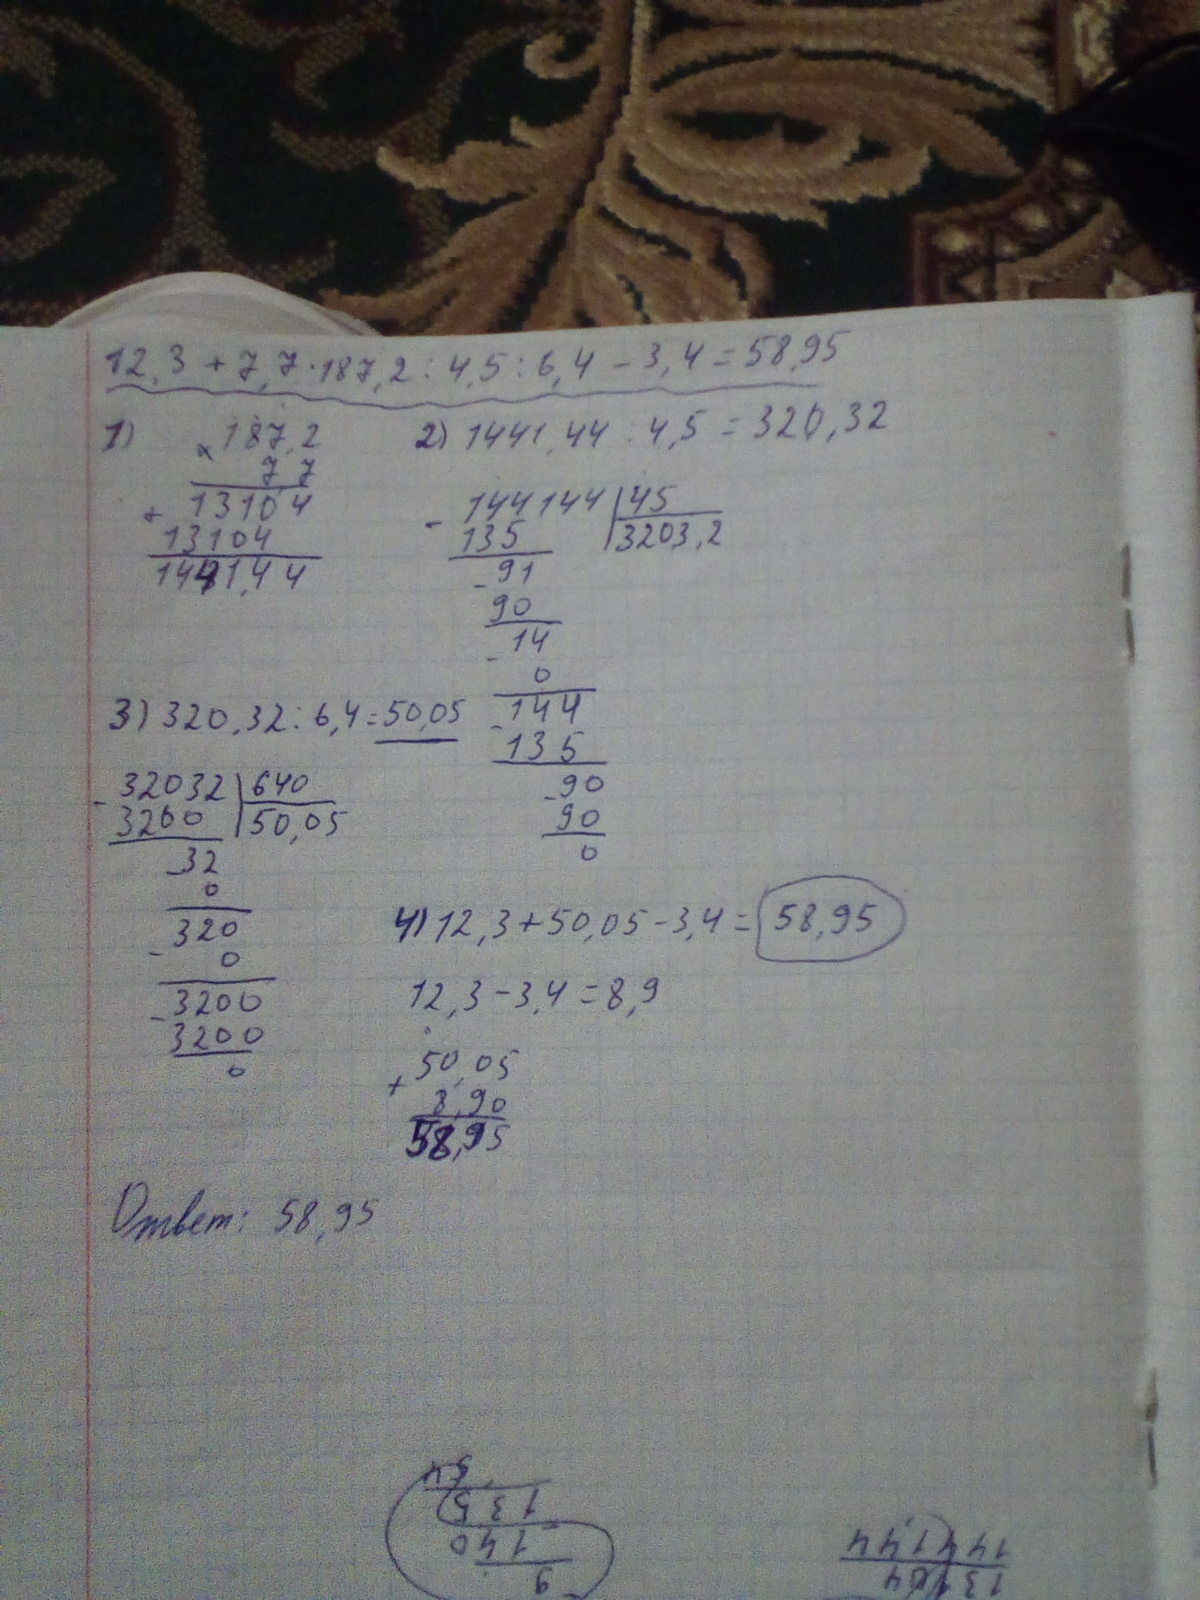 12,3 + 7,7·187,2 : 4,5 : 6,4 - 3,4 = 58,95
1)
× 187,2
7 7
+ 13104
13104
1441,44
2) 1441,44 : 4,5 = 320,32
- 144144 | 45
135 | 3203,2
- 91
90
- 14
0
- 144
135
- 90
90
0
3) 320,32 : 6,4 = 50,05
- 32032 | 640
3200 | 50,05
32
0
320
- 0
- 3200
3200
0
4) 12,3 + 50,05 - 3,4 = 58,95
12,3 - 3,4 = 8,9
+ 50,05
8,90
58,95
Ответ: 58,95
9
140
135